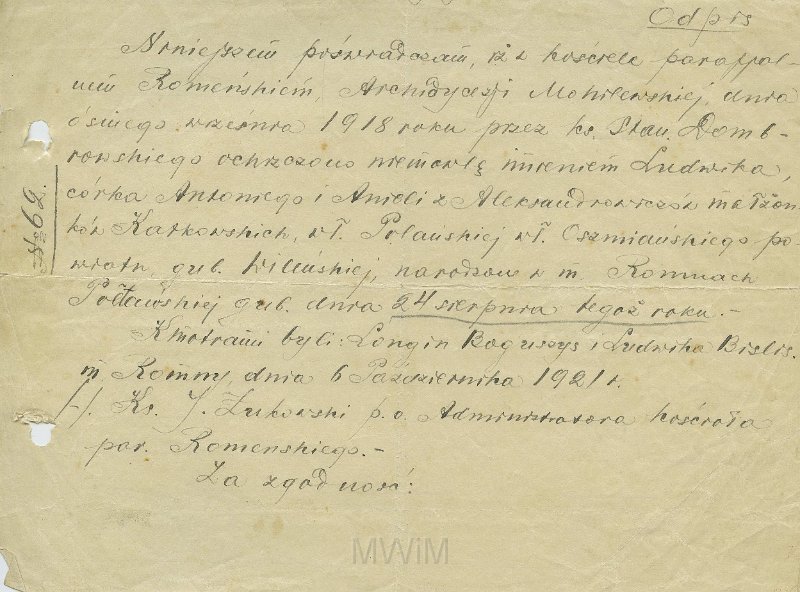 Odpis
Niniejszem poświadczam, iż w kościele parafjal-
nem Romeńskiem, Archidyecezji Mohilewskiej, dnia
ósmego września 1918 roku przez ks. Stan. Domb-
rowskiego ochrzczono niemowlę imieniem Ludwika,
córka Antoniego i Anieli z Aleksandrowiczów małżon-
ków Karkowskich, wł. Polańskiej wł. Oszmiańskiego po-
wiatu, gub. Wileńskiej, narodzone w m. Romnach
Połtawskiej gub. dnia 24 sierpnia tegoż roku. -
Kmotrami byli: Longin Boguszys i Ludwika Bislis.
m. Romny, dnia 6 Października 1921 r.
/-/. Ks. J. Żukowski p. o. Administratora kościoła
par. Romenskiego. -
Za zgodność:
MWiM